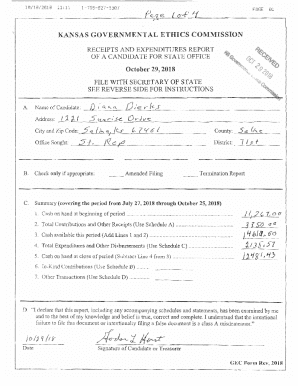 10/29/2018 11:11
PAGE 01
Page 1 of 4
KANSAS GOVERNMENTAL ETHICS COMMISSION
RECEIPTS AND EXPENDITURES REPORT
OF A CANDIDATE FOR STATE OFFICE
October 29, 2018
FILE WITH SECRETARY OF STATE
SEE REVERSE SIDE FOR INSTRUCTIONS
RECEIVED
OCT 29 2018
A. Name of Candidate: Diana Dierks
Address: 1221 Sunrise Drive
City and Zip Code: Salina, Ks 67401 County: Saline
Office Sought: St. Rep District: 71st
B. Check only if appropriate: Amended Filing Termination Report
C. Summary (covering the period from July 27, 2018 through October 25, 2018)
1. Cash on hand at beginning of period
2. Total Contributions and Other Receipts (Use Schedule A)
3. Cash available this period (Add Lines 1 and 2)
4. Total Expenditures and Other Disbursements (Use Schedule C)
5. Cash on hand at close of period (Subtract Line 4 from 3)
6. In-Kind Contributions (Use Schedule B)
7. Other Transactions (Use Schedule D)
D. "I declare that this report, including any accompanying schedules and statements, has been examined by me
and to the best of my knowledge and belief is true, correct and complete. I understand that the intentional
failure to file this document or intentionally filing a false document is a class A misdemeanor."
10/29/18
Date Signature of Candidate or Treasurer
GEC Form Rev. 2018